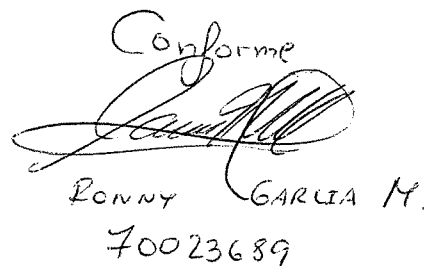 Conforme
RONNY GARCIA M.
70023689